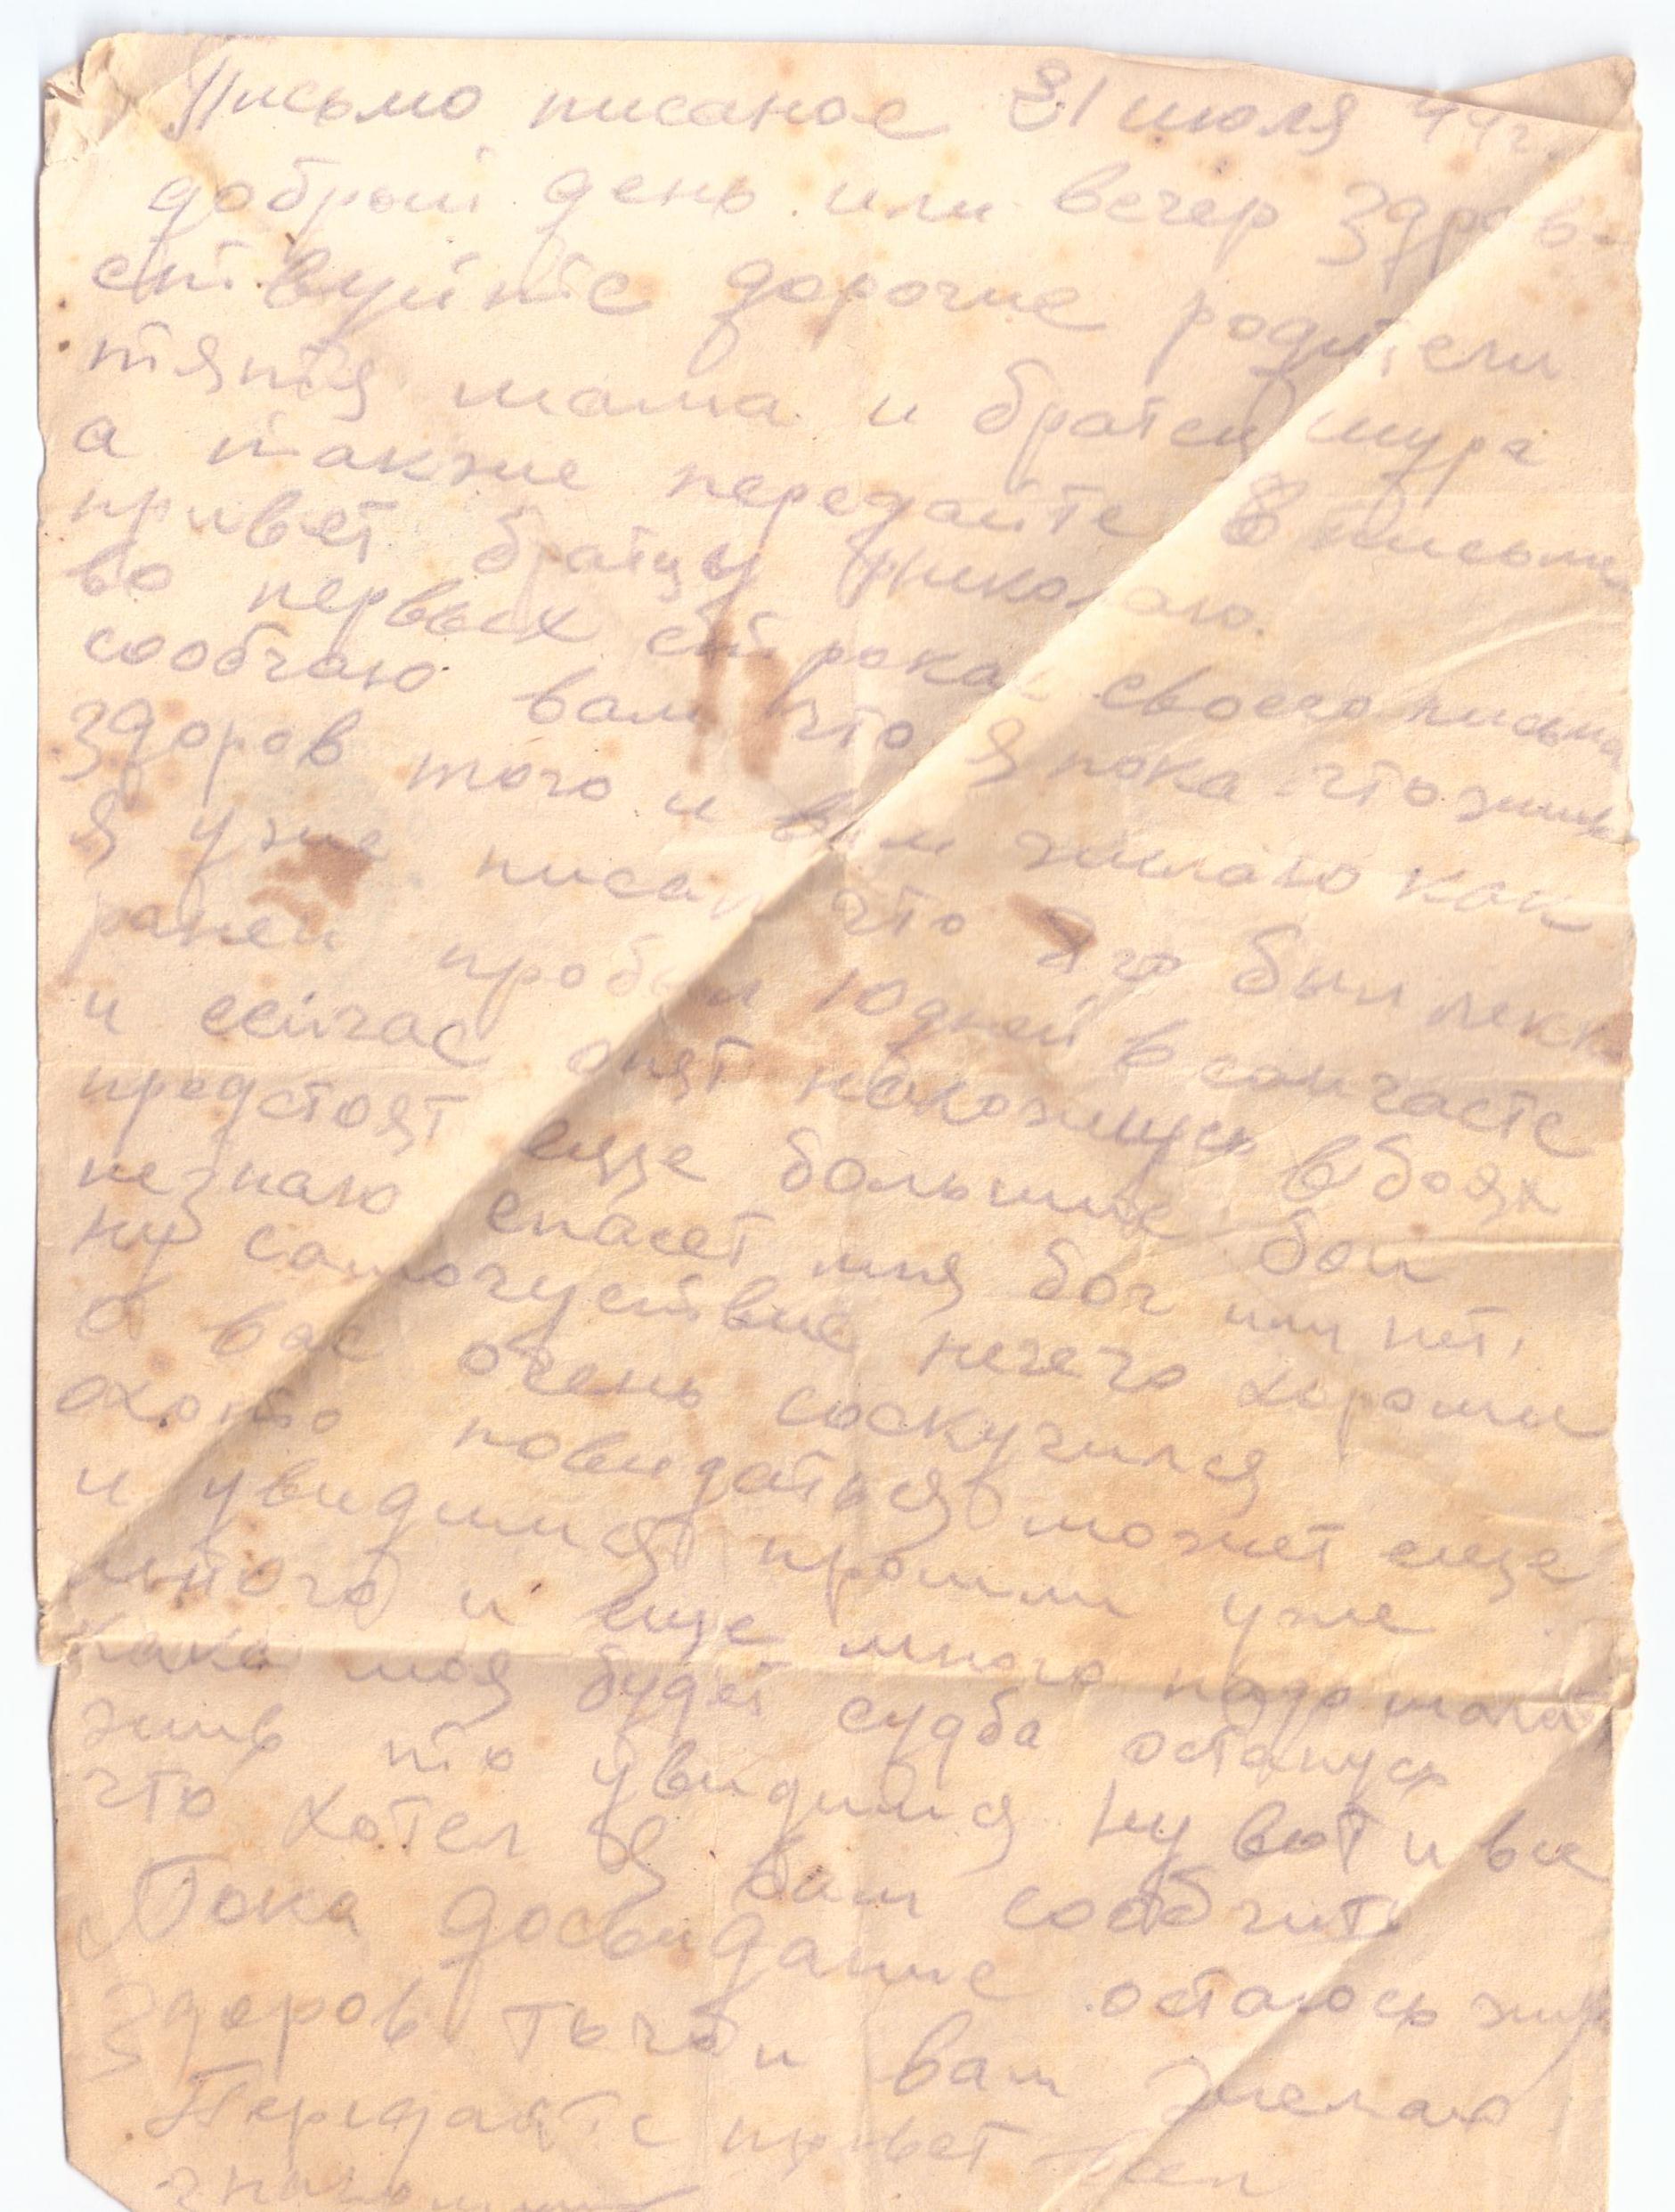 Письмо писаное 31 июля 44 г.
добрый день или вечер здрав-
ствуйте дорогие родители
тятя мама и братец шура
а также передайте в письми
привет братцу николаю.
во первых строках своего письма
сообчаю вам что я пока что жив
здоров того и вам жилаю как
я уже писал что я был лекко
ранен пробыл 10 дней в санчасте
и сейчас опят нахожусь в боях
предстоят еще большие бои
незнаю спасет мня бог или нет.
ну самочуствие нечего хорошее
о вас очень соскучился
охото повидаться может еще
и увидимся прошли уже
много и еще много надо
кака моя будет судба останусь
жив то увидимся ну вот и все
что хотел я вам сообчить
Пока досвидание остаюсь жив
здоров того и вам желаю
Передайте привет всем
знакомым